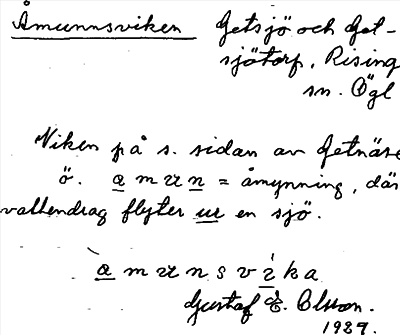 Åmunnsviken Getsjö och Get-
sjötorp, Rising
sn. Ögl
Viken på s. sidan av Getnäse
ö. amun = åmynning, där
vattendrag flyter ur en sjö.
amunsvika
Gustaf E. Olsson.
1927.